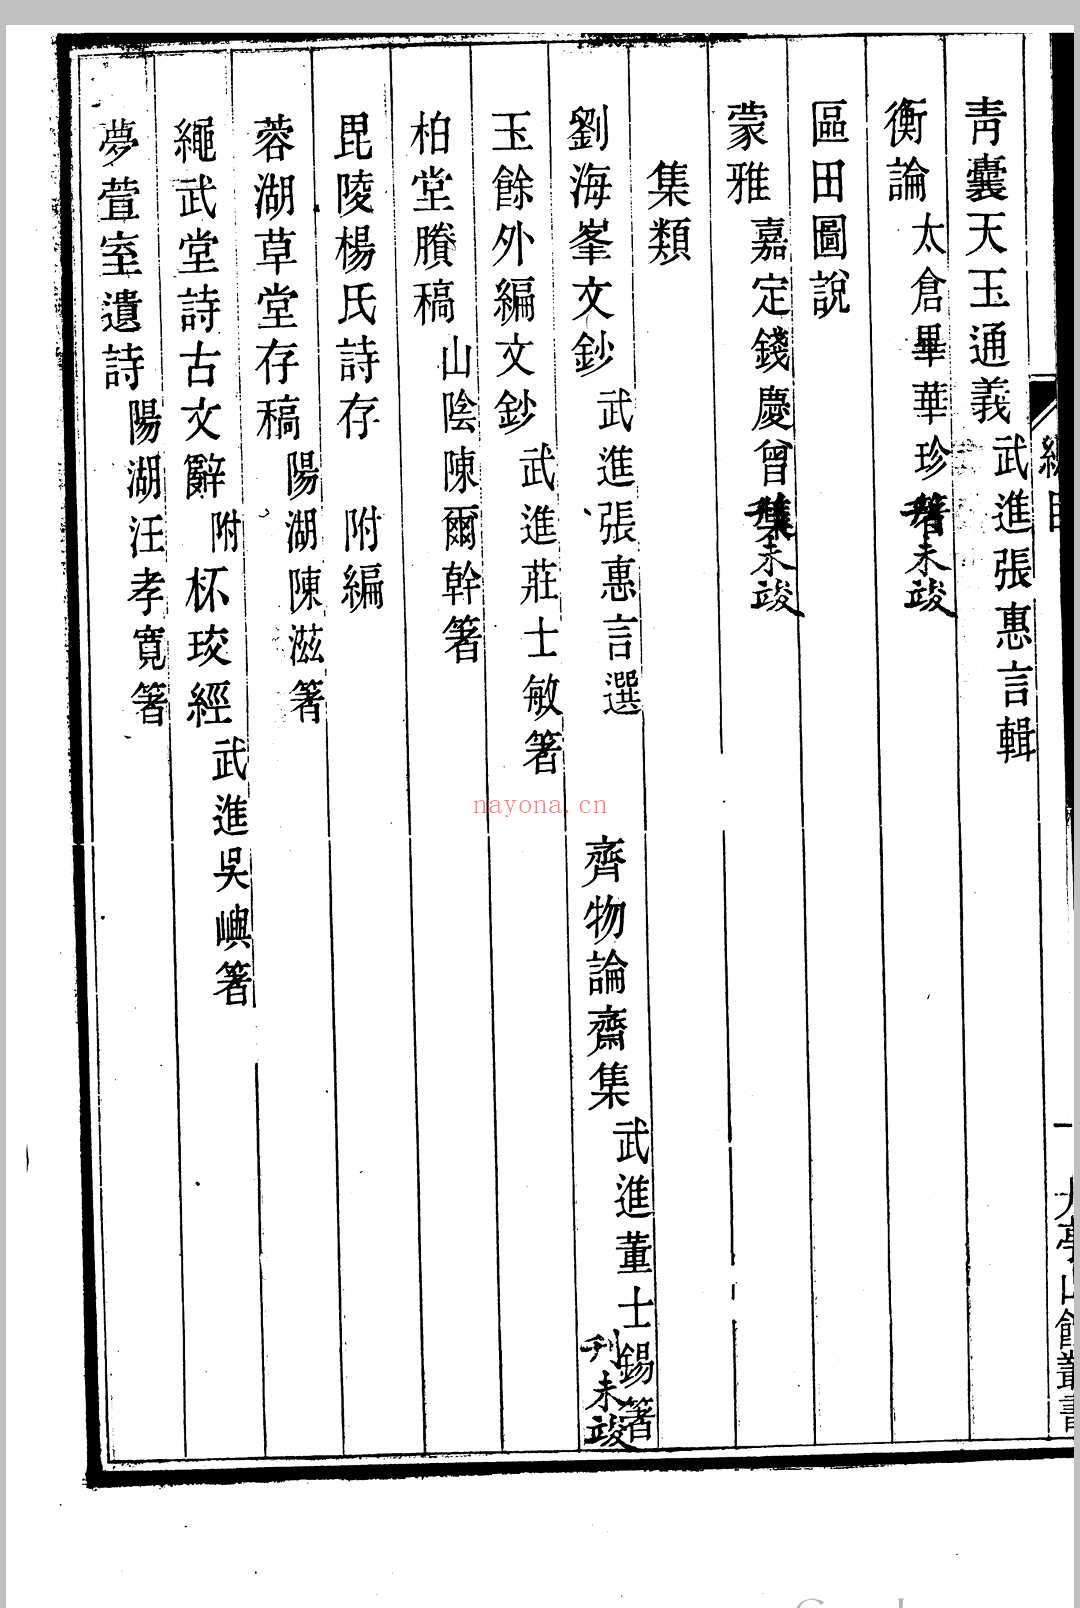 青囊天玉通義 武進張惠言輯
衡論 太倉畢華珍著 刊未竣
區田圖說
蒙雅 嘉定錢慶曾集 刊未竣
集類
劉海峯文鈔 武進張惠言選 齊物論齋集 武進董士錫箸 刊未竣
玉餘外編文鈔 武進莊士敏箸
柏堂賸稿 山陰陳爾幹箸
毘陵楊氏詩存 附編
蓉湖草堂存稿 陽湖陳滋箸
繩武堂詩古文辭 附 杯珓經 武進吳嶼箸
夢萱室遺詩 陽湖汪孝寬箸
nayona.cn